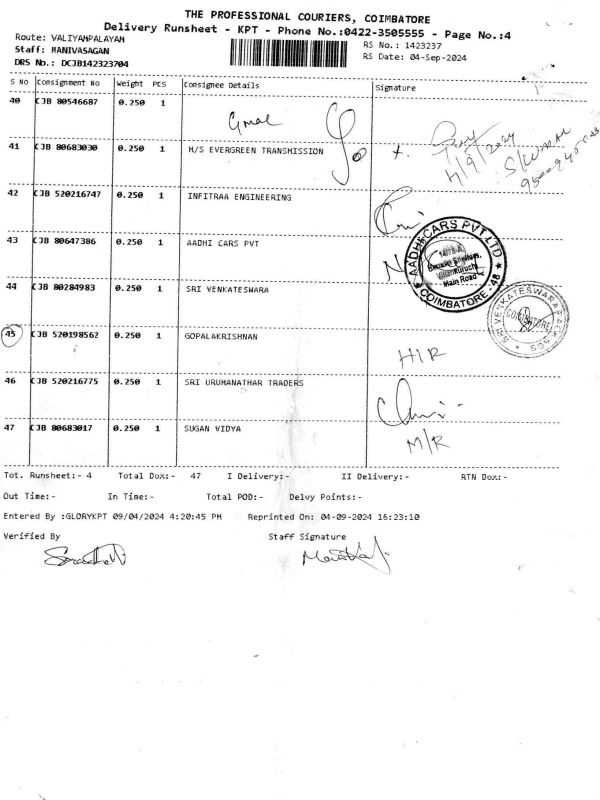 THE PROFESSIONAL COURIERS, COIMBATORE
Delivery Runsheet - KPT - Phone No.:0422-3505555 - Page No.:4
Route: VALIYAMPALAYAM
RS No.: 1423237
Staff: MANIVASAGAN
RS Date: 04-Sep-2024
DRS No.: DCJB142323704
S No Consignment No Weight PCS Consignee Details Signature
40 CJB 80546687 0.250 1
41 CJB 80683030 0.250 1 M/S EVERGREEN TRANSMISSION
4/9/2024
42 CJB 520216747 0.250 1 INFITRAA ENGINEERING
43 CJB 80647386 0.250 1 AADHI CARS PVT
AADHI CARS PVT LTD
Main Road
COIMBATORE - 48
44 CJB 80284983 0.250 1 SRI VENKATESWARA
SRI VENKATESWARA
COIMBATORE
45 CJB 520198562 0.250 1 GOPALAKRISHNAN
H/R
46 CJB 520216775 0.250 1 SRI URUMANATHAR TRADERS
47 CJB 80683017 0.250 1 SUGAN VIDYA
M/R
Tot. Runsheet:- 4 Total Dox:- 47 I Delivery:- II Delivery:- RTN Dox:-
Out Time:- In Time:- Total POD:- Delvy Points:-
Entered By :GLORYKPT 09/04/2024 4:20:45 PM Reprinted On: 04-09-2024 16:23:10
Verified By Staff Signature